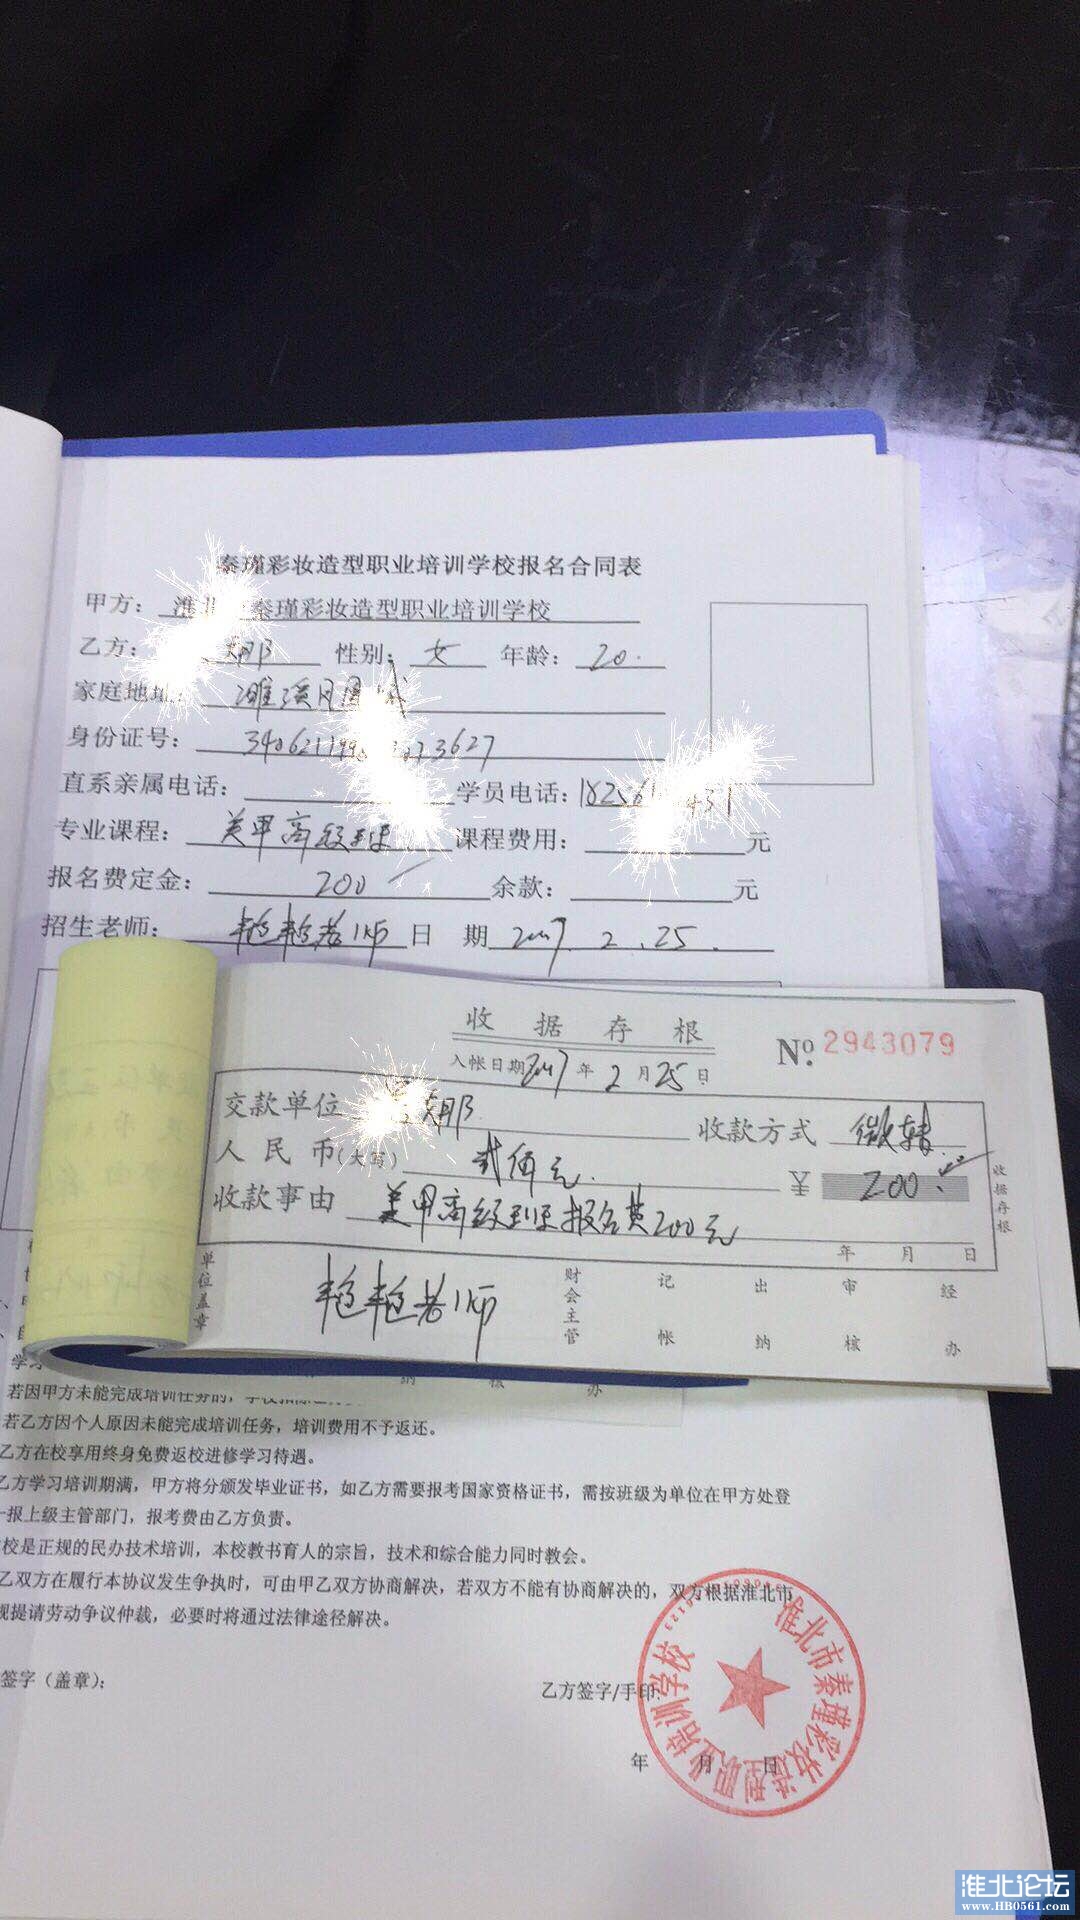 秦瑾彩妆造型职业培训学校报名合同表
甲方： 淮北 秦瑾彩妆造型职业培训学校
乙方： 娜 性别： 女 年龄： 20.
家庭地址： 濉溪月圆城
身份证号： 34062119 3627
直系亲属电话： 学员电话：18256 431
专业课程： 美甲高级班 课程费用： 元
报名费定金： 200 余款： 元
招生老师： 艳艳老师 日 期 2017. 2. 25.
收据存根
No. 2943079
入帐日期 2017 年 2 月 25 日
交款单位 娜 收款方式 微转
人民币(大写) 贰佰元. ¥ 200.
收款事由 美甲高级班报名费200元
收据存根
年 月 日
单位盖章 艳艳老师 财会主管 记帐 出纳 审核 经办
纳 核 办
学习
若因甲方未能完成培训任务的，学校扣除
若乙方因个人原因未能完成培训任务，培训费用不予返还。
乙方在校享用终身免费返校进修学习待遇。
乙方学习培训期满，甲方将分颁发毕业证书，如乙方需要报考国家资格证书，需按班级为单位在甲方处登
一报上级主管部门，报考费由乙方负责。
校是正规的民办技术培训，本校教书育人的宗旨，技术和综合能力同时教会。
乙双方在履行本协议发生争执时，可由甲乙双方协商解决，若双方不能有协商解决的，双方根据淮北市
规提请劳动争议仲裁，必要时将通过法律途径解决。
签字（盖章）：
乙方签字/手印：
年 月 日
淮北市秦瑾彩妆造型职业培训学校
淮北论坛
www.HB0561.com